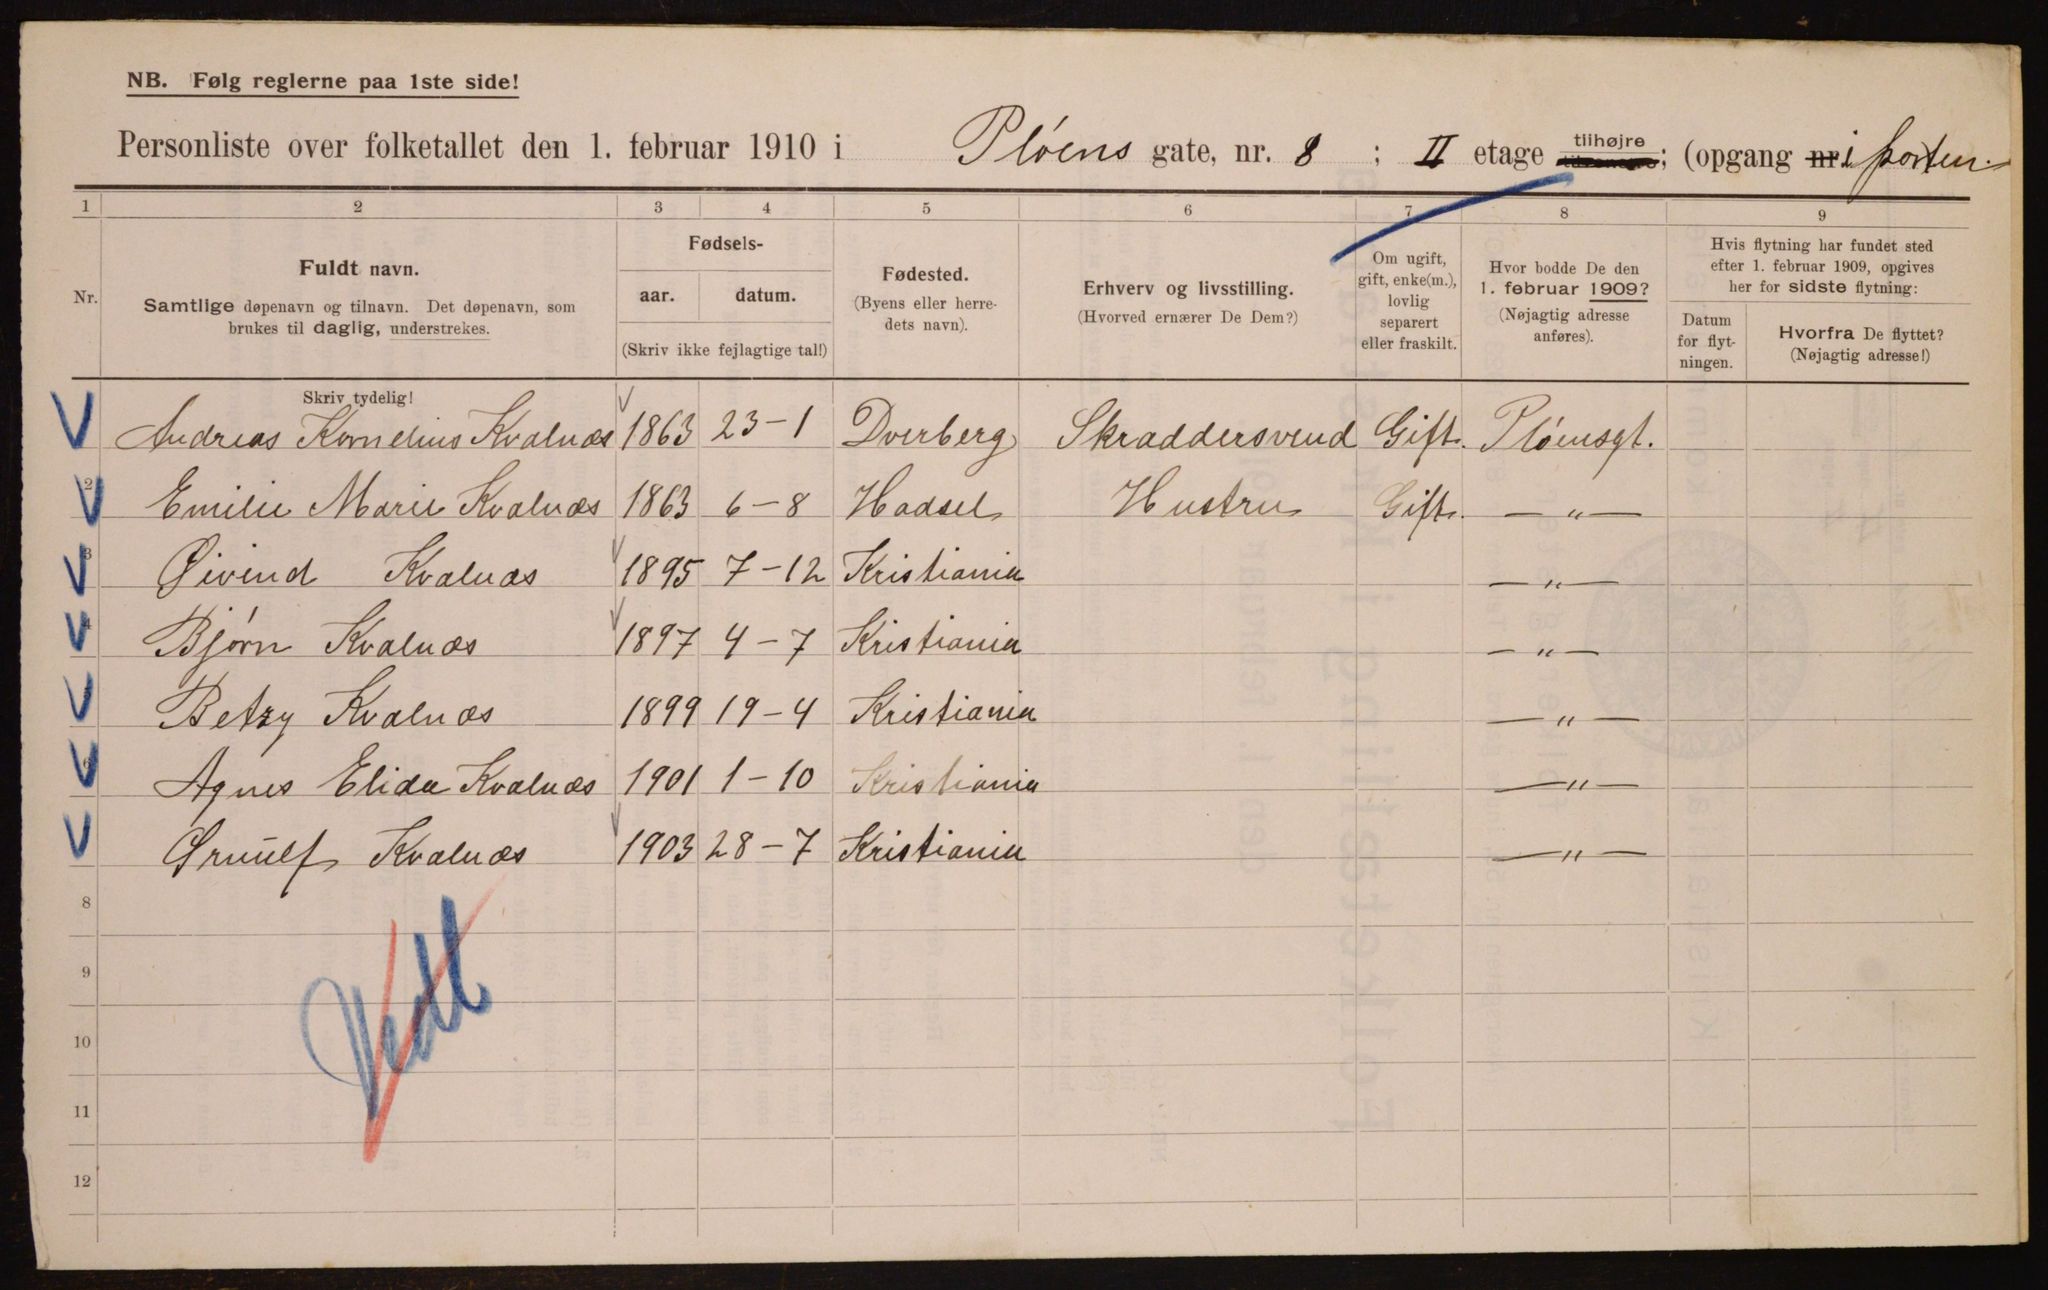 NB. Følg reglerne paa 1ste side!
Personliste over folketallet den 1. februar 1910 i Pløens gate, nr. 8 ; II etage tilhøjre ; (opgang nr i porten.
1 2 3 4 5 6 7 8 9
Nr.
Fuldt navn.
Samtlige døpenavn og tilnavn. Det døpenavn, som
brukes til daglig, understrekes.
Fødsels-
aar. datum.
(Skriv ikke fejlagtige tal!)
Fødested.
(Byens eller herre-
dets navn).
Erhverv og livsstilling.
(Hvorved ernærer De Dem?)
Om ugift,
gift, enke(m.),
lovlig
separert
eller fraskilt.
Hvor bodde De den
1. februar 1909?
(Nøjagtig adresse
anføres).
Hvis flytning har fundet sted
efter 1. februar 1909, opgives
her for sidste flytning:
Datum
for flyt-
ningen.
Hvorfra De flyttet?
(Nøjagtig adresse!)
Skriv tydelig!
Andreas Kornelius Kvalnæs 1863 23-1 Dverberg Skraddersvend Gift. Pløensgt.
2 Emilie Marie Kvalnæs 1863 6-8 Hadsel Hustru Gift. — " —
3 Øivind Kvalnæs 1895 7-12 Kristiania — " —
4 Bjørn Kvalnæs 1897 4-7 Kristiania — " —
Betzy Kvalnæs 1899 19-4 Kristiania — " —
6 Agnes Elida Kvalnæs 1901 1-10 Kristiania — " —
Ørnulf Kvalnæs 1903 28-7 Kristiania — " —
8
9
10
11
12